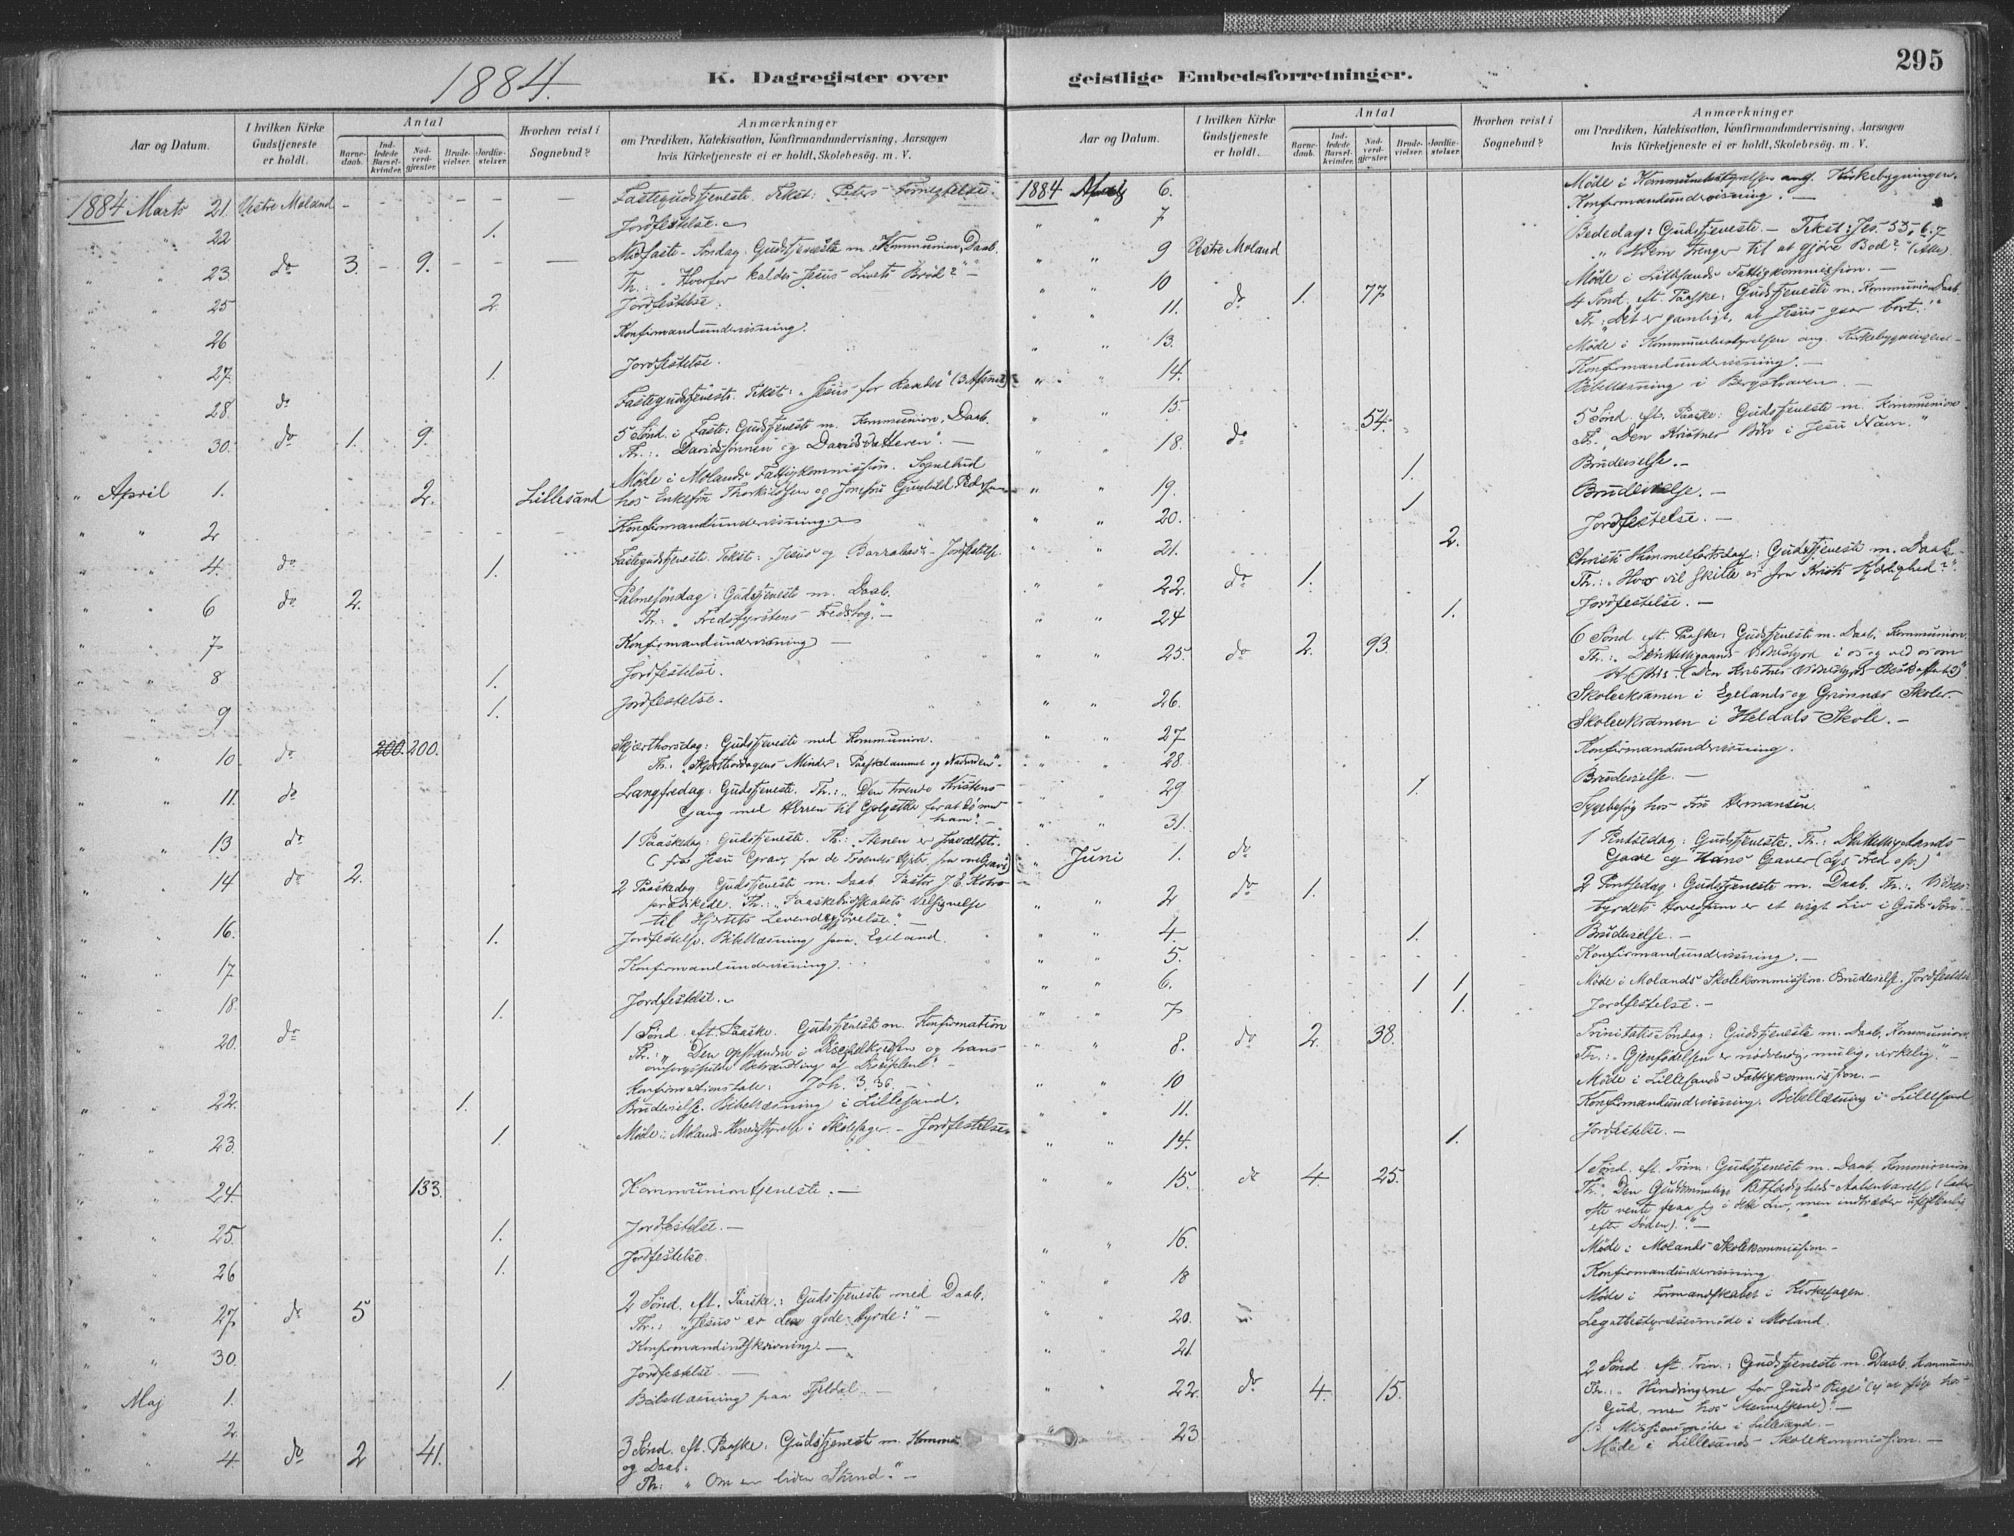 295
1884.
K. Dagregister over geistlige Embedsforretninger.
Aar og Datum.
I hvilken Kirke Gudstjeneste er holdt.
Antal
Barne-daab.
Ind-ledede Barsel-kvinder.
Nad-verd-gjæster.
Brude-vielser.
Jordfæ-stelser.
Hvorhen reist i Sognebud?
Anmærkninger
om Prædiken, Katekisation, Konfirmandundervisning, Aarsagen
hvis Kirketjeneste ei er holdt, Skolebesög. m. V.
1884 Marts 21 Vestre Moland - - - - - - Fastegudstjeneste. Tekst: Peters Fornegtelse.
" " 22 1. Jordfestelse.
" " 23. do 3. - 9. - - - Midfaste-Søndag. Gudstjeneste m. Kommunion, Daab.
Th.: "Hvorfor kaldes Jesus Livets Brød?" -
" " 25 2. Jordfestelse.
" " 26 Konfirmandundervisning.
" " 27. 1. Jordfestelse.
" " 28 do Fastegudstjeneste. Tekst: "Jesus for Raadet"
" " 30. do 1. 9. 5 Sønd. i Faste: Gudstjeneste m. Kommunion, Daab.
Th.: "Davidssønnen og Davidsherren". -
" April 1. 2. Lillesand Møde i Molands Fattigkommission. Sognebud
hos Enkefru Thorkildsen og Jomfru Gunhild Pedersen
" " 2 Konfirmandundervisning.
" " 4. do 1. Fastegudstjeneste. Tekst: Jesus og Barrabas - Jordfestelse
" " 6 do 2. Palmesøndag: Gudstjeneste m. Daab.
Th.: "Fredsfyrstens Fredstog." -
" " 7 Konfirmandundervisning -
" " 8 1. Jordfestelse.
" " 9 1. Jordfestelse.
" " 10 do 200. 200. Skjærthorsdag: Gudstjeneste med Kommunion.
Th.: "Skjærthorsdagens Minder: Paaskelammet og Nadveren".
" " 11. do Langfredag: Gudstjeneste. Th.: "Den troende Kristens
Gang med Herren til Golgatha for at dø med
ham". -
" " 13 do 1 Paaskedag: Gudstjeneste. Th.: Stenen er fravæltet"
(fra Jesu Grav, fra de Troendes Hjerter, fra vore Grave)
" " 14 do 2. 2 Paaskedag. Gudstjeneste m. Daab. Pastor J. E.
prædikede. Th.: "Paaskebudskabets Velsignelse
til Hjertets Levendegjørelse."
" " 16. 1. Jordfestelse. Bibellæsning paa Egeland.
" " 17 Konfirmandundervisning.
" " 18. 1. Jordfestelse.
" " 20. do 1 Sønd. eft. Paaske. Gudstjeneste m. Konfirmation
Th.: "Den opstandne i Discipelkredsen og hans
Behandling af Disciplene". -
Konfirmationstale: Joh. 3, 36.
" " 22. 1. Brudevielse. Bibellæsning i Lillesand.
" " 23. 1. Møde i Moland Herredstyrelse i Skolesager. - Jordfestelse
" " 24 133. Kommuniontjeneste. -
" " 25. 1. Jordfestelse. -
" " 26 1. Jordfestelse.
" " 27 do 5 2 Sønd. eft. Paaske: Gudstjeneste med Daab.
Th.: "Jesus er den gode Hyrde." -
" " 30. Konfirmandindskrivning. -
" Maj 1. 1. Jordfestelse. -
" " 2. Bibellæsning paa Fjeldal. -
" " 4 do 2 41. 3 Sønd. eft. Paaske: Gudstjeneste m. Kommu
og Daab.
Th: "Om en liden Stund." -
Aar og Datum.
I hvilken Kirke Gudstjeneste er holdt.
Antal
Barne-daab.
Ind-ledede Barsel-kvinder.
Nad-verd-gjæster.
Brude-vielser.
Jordfæ-stelser.
Hvorhen reist i Sognebud?
Anmærkninger
om Prædiken, Katekisation, Konfirmandundervisning, Aarsagen
hvis Kirketjeneste ei er holdt, Skolebesög. m. V.
1884 6. Møde i Kommunestyrelsen ang. Kirkebygningen.
" 7 Konfirmandundervisning. -
" " 9 Vestre Moland Bededag: Gudstjeneste. - Tekst: Jes. 53, 6.7
"Hvem trenger til at gjøre Bod?" (Alle).
" " 10 Møde i Lillesands Fattigkommission. -
" " 11. do 1. 77 4 Sønd. eft. Paaske: Gudstjeneste m. Kommunion Daab.
Th.: "Det er gavnligt, at Jesus gaar bort."
" " 13. Møde i Kommunestyrelsen ang. Kirkebygningen -
" " 14. Konfirmandundervisning. -
" " 15. Bibellæsning i
" " 18. do 54. 5 Sønd. eft. Paaske: Gudstjeneste m. Kommunion
Th. "Den Kristnes Bøn i Jesu Navn."
" " 19. 1. Brudevielse. -
" " 20. 1 Brudevielse. -
" " 21. 2. Jordfestelse. -
" " 22. do 1. Christi Himmelfartsdag: Gudstjeneste m. Daab -
Th.: "Hvo vil skille os fra Kristi Kjærlighed?"
" " 24 1. Jordfestelse. -
" " 25. do 2. 93. 6 Sønd. eft. Paaske: Gudstjeneste m. Daab, Kommunion.
Th.: "Den Helligaands Vidnesbyrd i os og ved os om
" " 26. Skoleeksamen i Egelands og Grønnæs Skoler.
" " 27 Skoleeksamen i Heldals Skole. -
" " 28. Konfirmandundervisning.
" " 29 1. Brudevielse. -
" " 31. Sygebesøg hos Fru Hermansen.
" Juni 1. do 1 Pintsedag: Gudstjeneste. Th.: Den Helligaands
Gave og Hans Gaver
" " 2 do 1. 2 Pintsedag: Gudstjeneste m. Daab. Th.: "Vidnes-
byrdets Hovedsum er et evigt Liv i Guds Søn". -
" " 4. 1. Brudevielse. -
" " 5. Konfirmandundervisning. -
" " 6. 1 1 Møde i Molands Skolekommission. Brudevielse. Jordfestelse
" " 7 1. Jordfestelse. -
" " 8. do 2. 38. Trinitatis Søndag: Gudstjeneste m. Daab, Kommunion.
Th.: "Gjenfødelsen er nødvendig, mulig, virkelig." -
" " 10 Møde i Lillesands Fattigkommission. -
" " 11. Konfirmandundervisning. Bibellæsning i Lillesand
" " 14. 1. Jordfestelse. -
" " 15. do 4. 25. 1 Sønd. eft. Trin: Gudstjeneste m. Daab, Kommunion
Th.: "Den Guddommelige Retfærdigheds Aabenbarelse (lader
ofte vente paa sig i dette Liv, men indtræder
efter Døden)." -
" " 16. Møde i Molands Skolekommission -
" " 18 Konfirmandundervisning
" " 20. Møde i Formandskabet i Kirkesagen.
" " 21. Legatbestyrelsesmøde i Moland.
" " 22. do 4. 15. 2 Sønd. eft. Trin: Gudstjeneste m. Daab, Kommunion
Th.: "Hindringerne for Guds Rige (ej at søge hos
Gud, men hos Menneskene)". -
Missionsmøde i Lillesand. -
" " 23 Møde i Lillesands Skolekommission. -